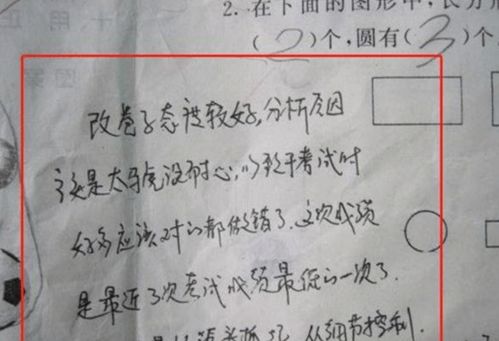 2.在下面的图形中，长方形
(2)个，圆有(3)个
改卷子态度较好，分析原因
主要是太马虎没耐心，以致于考试时
好多应该对的都做错了，这次成绩
是最近了次考试成绩最低的一次了.
从细节控制.